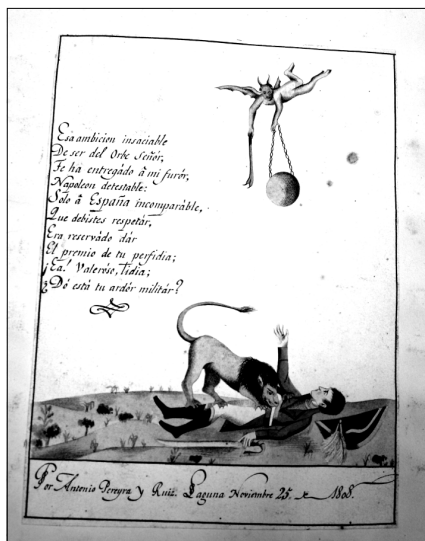 Esa ambicion insaciable
De ser del Orbe Señór,
Te ha entregádo â mi furór,
Napoleon detestable:
Sólo â España incomparáble,
Que debistes respetár,
Era reservádo dár
El premio de tu perfidia;
¡Ea! Valeróso, Tidia;
¿Dó está tu ardór militár?
Por Antonio Pereyra y Ruiz. Laguna Noviembre 25. de 1808.